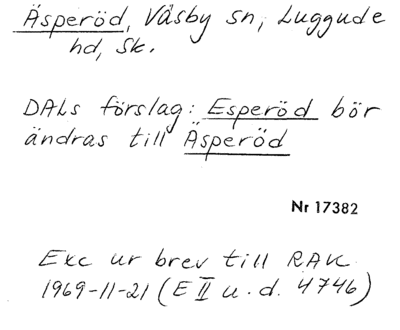 Äsperöd, Väsby sn, Luggude
hd, Sk.
DALs förslag: Esperöd bör
ändras till Äsperöd
Nr 17382
Exc ur brev till RAK
1969-11-21 (E II u.d. 4746)